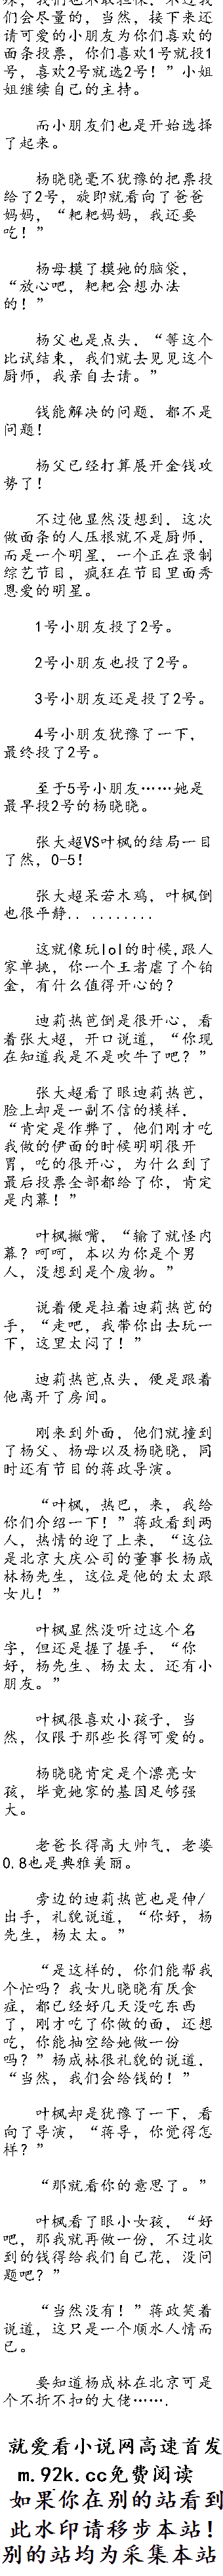 殊，我们也不敢担保，不过我
们会尽量的，当然，接下来还
请可爱的小朋友为你们喜欢的
面条投票，你们喜欢1号就投1
号，喜欢2号就选2号！”小姐
姐继续自己的主持。
而小朋友们也是开始选择
了起来。
杨晓晓毫不犹豫的把票投
给了2号，旋即就看向了爸爸
妈妈，“粑粑妈妈，我还要
吃！”
杨母摸了摸她的脑袋，
“放心吧，粑粑会想办法
的！”
杨父也是点头，“等这个
比试结束，我们就去见见这个
厨师，我亲自去请。”
钱能解决的问题，都不是
问题！
杨父已经打算展开金钱攻
势了！
不过他显然没想到，这次
做面条的人压根就不是厨师，
而是一个明星，一个正在录制
综艺节目，疯狂在节目里面秀
恩爱的明星。
1号小朋友投了2号。
2号小朋友也投了2号。
3号小朋友还是投了2号。
4号小朋友犹豫了一下，
最终投了2号。
至于5号小朋友……她是
最早投2号的杨晓晓。
张大超VS叶枫的结局一目
了然，0-5！
张大超呆若木鸡，叶枫倒
也很平静.. ........
这就像玩lol的时候,跟人
家单挑，你一个王者虐了个铂
金，有什么值得开心的？
迪莉热芭倒是很开心，看
着张大超，开口说道，“你现
在知道我是不是吹牛了吧？”
张大超看了眼迪莉热芭，
脸上却是一副不信的模样，
“肯定是作弊了，他们刚才吃
我做的伊面的时候明明很开
胃，吃的很开心，为什么到了
最后投票全部都给了你，肯定
是内幕！”
叶枫撇嘴，“输了就怪内
幕？呵呵，本以为你是个男
人，没想到是个废物。”
说着便是拉着迪莉热芭的
手，“走吧，我带你出去玩一
下，这里太闷了！”
迪莉热芭点头，便是跟着
他离开了房间。
刚来到外面，他们就撞到
了杨父、杨母以及杨晓晓，同
时还有节目的蒋政导演。
“叶枫，热巴，来，我给
你们介绍一下！”蒋政看到两
人，热情的迎了上来，“这位
是北京大庆公司的董事长杨成
林杨先生，这位是他的太太跟
女儿！”
叶枫显然没听过这个名
字，但还是握了握手，“你
好，杨先生、杨太太，还有小
朋友。”
叶枫很喜欢小孩子，当
然，仅限于那些长得可爱的。
杨晓晓肯定是个漂亮女
孩，毕竟她家的基因足够强
大。
老爸长得高大帅气，老婆
0.8也是典雅美丽。
旁边的迪莉热芭也是伸/
出手，礼貌说道，“你好，杨
先生，杨太太。”
“是这样的，你们能帮我
个忙吗？我女儿晓晓有厌食
症，都已经好几天没吃东西
了，刚才吃了你做的面，还想
吃，你能抽空给她做一份
吗？”杨成林很礼貌的说道，
“当然，我们会给钱的！”
叶枫却是犹豫了一下，看
向了导演，“蒋导，你觉得怎
样？”
“那就看你的意思了。”
叶枫看了眼小女孩，“好
吧，那我就再做一份，不过收
到的钱得给我们自己花，没问
题吧？”
“当然没有！”蒋政笑着
说道，这只是一个顺水人情而
已。
要知道杨成林在北京可是
个不折不扣的大佬…….
就爱看小说网高速首发
m.92k.cc免费阅读
如果你在别的站看到
此水印请移步本站！
别的站均为采集本站